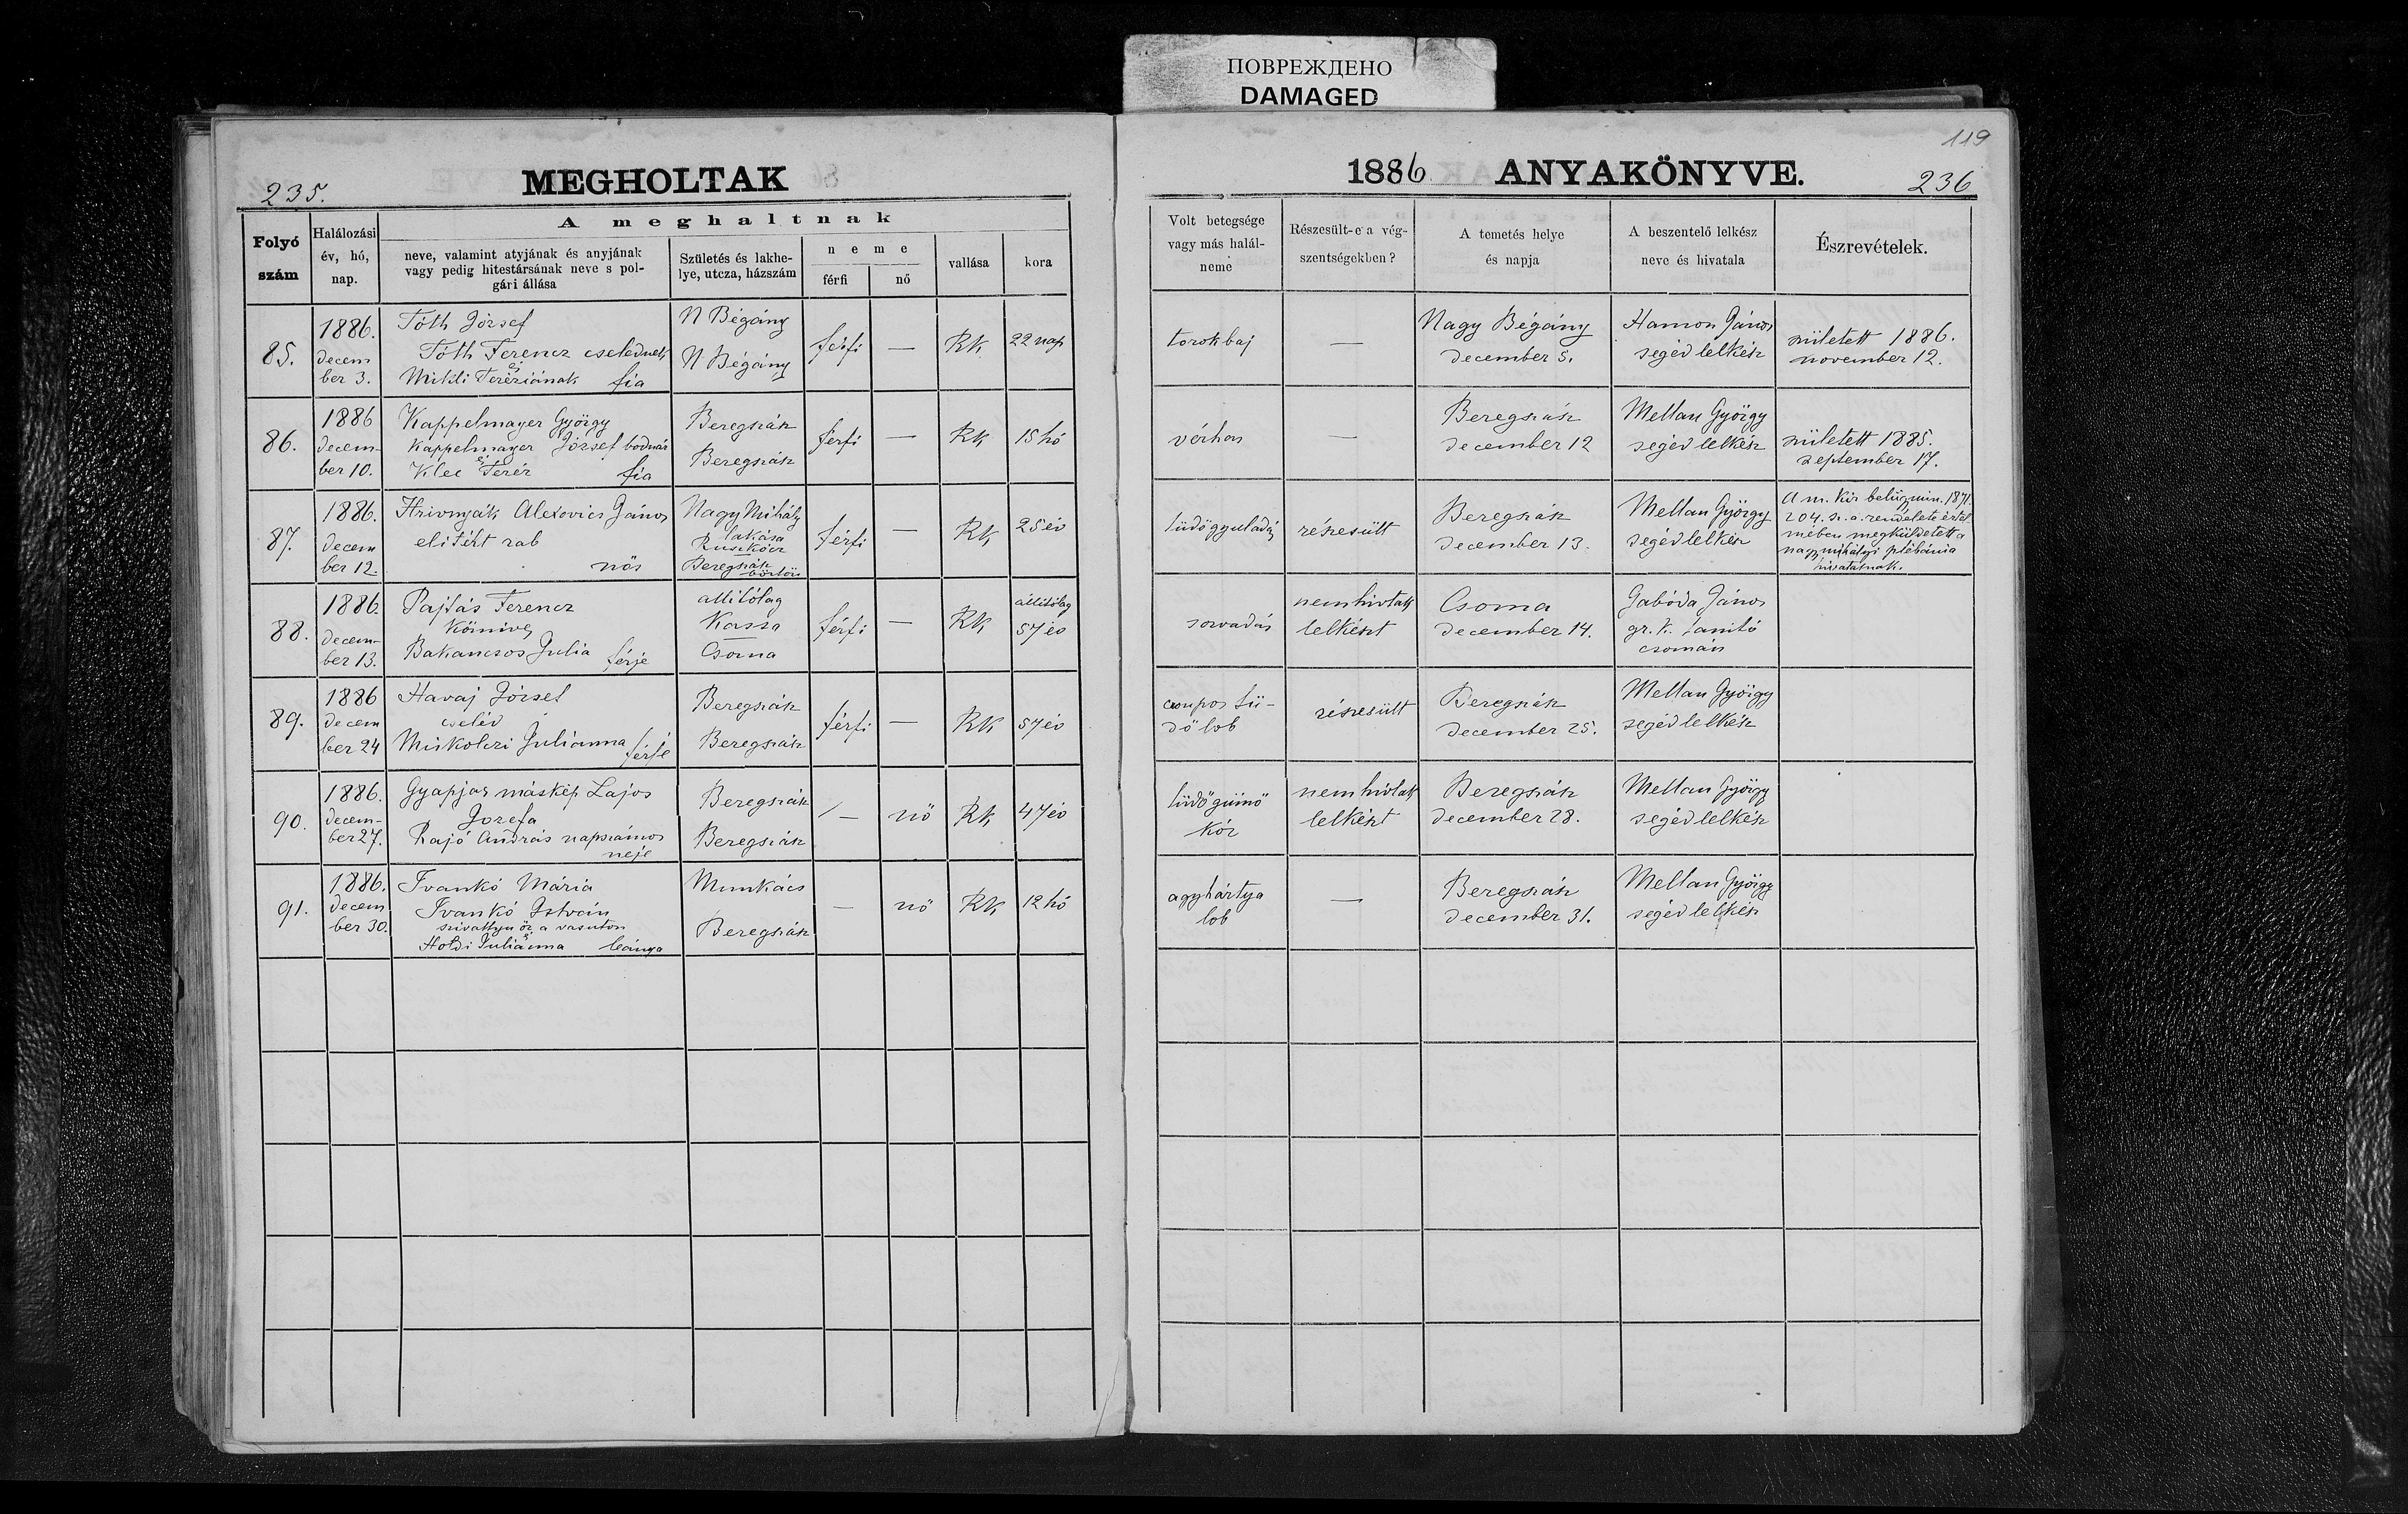 ПОВРЕЖДЕНО
DAMAGED
119
235.
MEGHOLTAK
1886 ANYAKÖNYVE.
236
Folyó szám
Halálozási év, hó, nap.
A meghaltnak
neve, valamint atyjának és anyjának vagy pedig hitestársának neve s polgári állása
Születés és lakhelye, utcza, házszám
neme
férfi
nő
vallása
kora
Volt betegsége vagy más halálneme
Részesült-e a végszentségekben?
A temetés helye és napja
A beszentelő lelkész neve és hivatala
Észrevételek.
85.
1886.
decem
ber 3.
Tóth József
Tóth Ferencz cselednek
és
Mikli Teréziának fia
N Bégány
N Bégány
férfi
—
RK
22 nap
torokbaj
—
Nagy Bégány
december 5.
Hamon János
segéd lelkész
született 1886.
november 12.
86.
1886
decem-
ber 10.
Kappelmayer György
Kappelmayer József bodnár
és
Klee Teréz fia
Beregszász
Beregszász
férfi
—
RK
15 hó
vérhas
—
Beregszász
december 12
Mellau György
segéd lelkész
született 1885.
szeptember 17.
87.
1886.
decem
ber 12.
Hrivnyák Alexovics János
elitélt rab
nős
Nagy Mihály
lakása
Ruszkócz
Beregszász
börtön
férfi
—
RK
25 év
tüdőgyuladás
részesült
Beregszász
december 13.
Mellau György
segéd lelkész
A m. kir belügymin. 1871.
204. sz. a. rendelete értel
mében megküldetett a
nagymihályi plébánia
hivatalnak.
88.
1886.
decem-
ber 13.
Pajtás Ferencz
Kőmives
Bakancsos Julia férje
állitólag
Kassa
Csoma
férfi
—
RK
állitólag
57 év
sorvadás
nem hivtak
lelkészt
Csoma
december 14.
Gabóda János
gr. k. tanitó
csomán
89.
1886
decem
ber 24
Havaj József
cseléd
Miskolczi Julianna férje
Beregszász
Beregszász
férfi
—
RK
57 év
csupos tü-
dő lob
részesült
Beregszász
december 25.
Mellau György
segéd lelkész
90.
1886.
decem-
ber 27.
Gyapjas máskép Lajos
Jozefa
Rajó András napszámos
neje
Beregszász
Beregszász
—
nő
RK
47 év
tüdőgümő
kór
nem hivtak
lelkészt
Beregszász
december 28.
Mellau György
segéd lelkész
91.
1886.
decem
ber 30.
Ivankó Mária
Ivankó István
szivattyu őr a vasuton
s
Holdi Julianna leánya
Munkács
Beregszász
—
nő
RK
12 hó
agyhártya
lob
—
Beregszász
december 31.
Mellau György
segéd lelkész